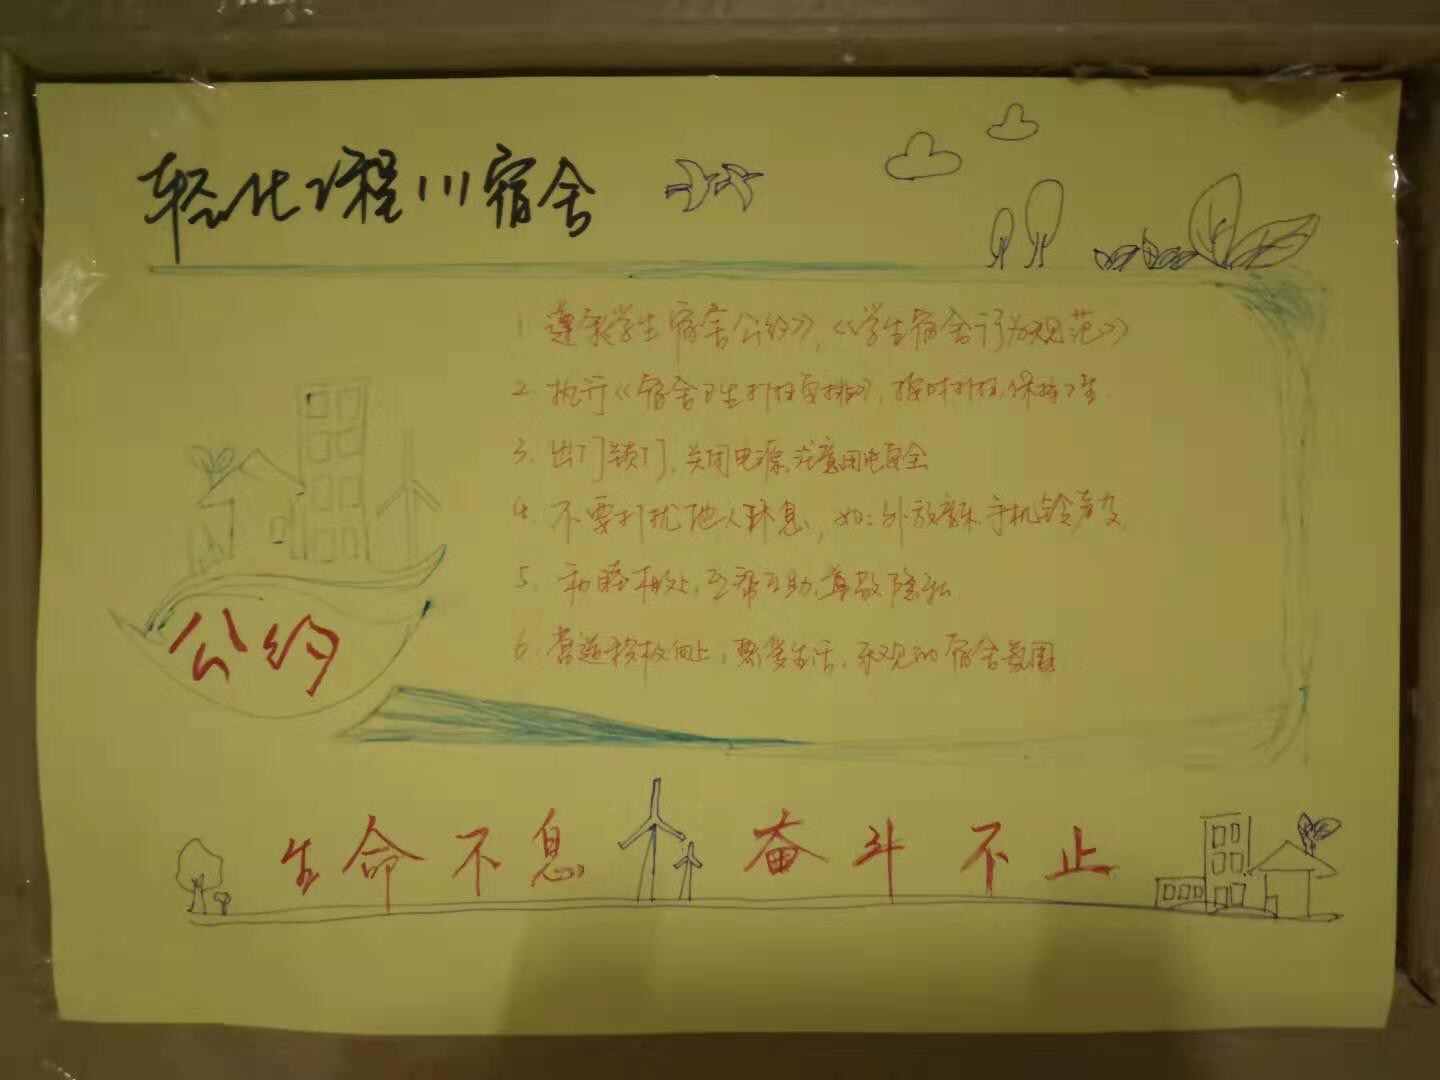 轻化工程111宿舍
1 遵守《学生宿舍公约》,《学生宿舍行为规范》
2. 执行《宿舍卫生打扫安排》,按时打扫,保持卫生
3. 出门锁门,关闭电源,注意用电安全
4. 不要打扰他人休息,如:外放音乐 手机铃声
5. 和睦相处,互帮互助,尊敬隐私
6. 营造积极向上,热爱生活,乐观的宿舍氛围
公约
生命不息 奋斗不止